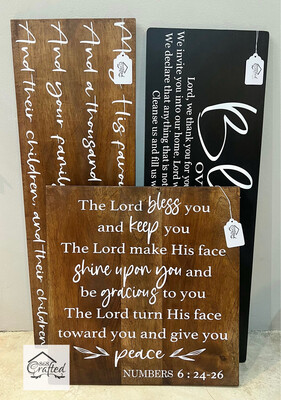 May His favou
And a thousand
And your family
And their children, and their children
Bl
OV
Lord, we thank you for yo
We invite you into our home. Lord w
We declare that anything that is not
Cleanse us and fill us w
The Lord bless you
and keep you
The Lord make His face
shine upon you and
be gracious to you
The Lord turn His face
toward you and give you
peace
NUMBERS 6 : 24-26
Crafted